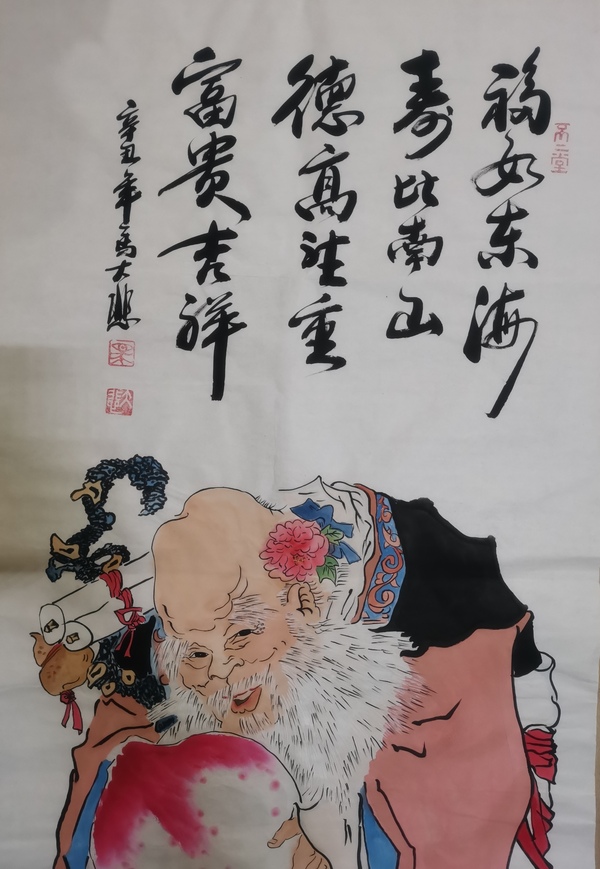 不二堂
福如东海
寿比南山
德高望重
富贵吉祥
辛丑年